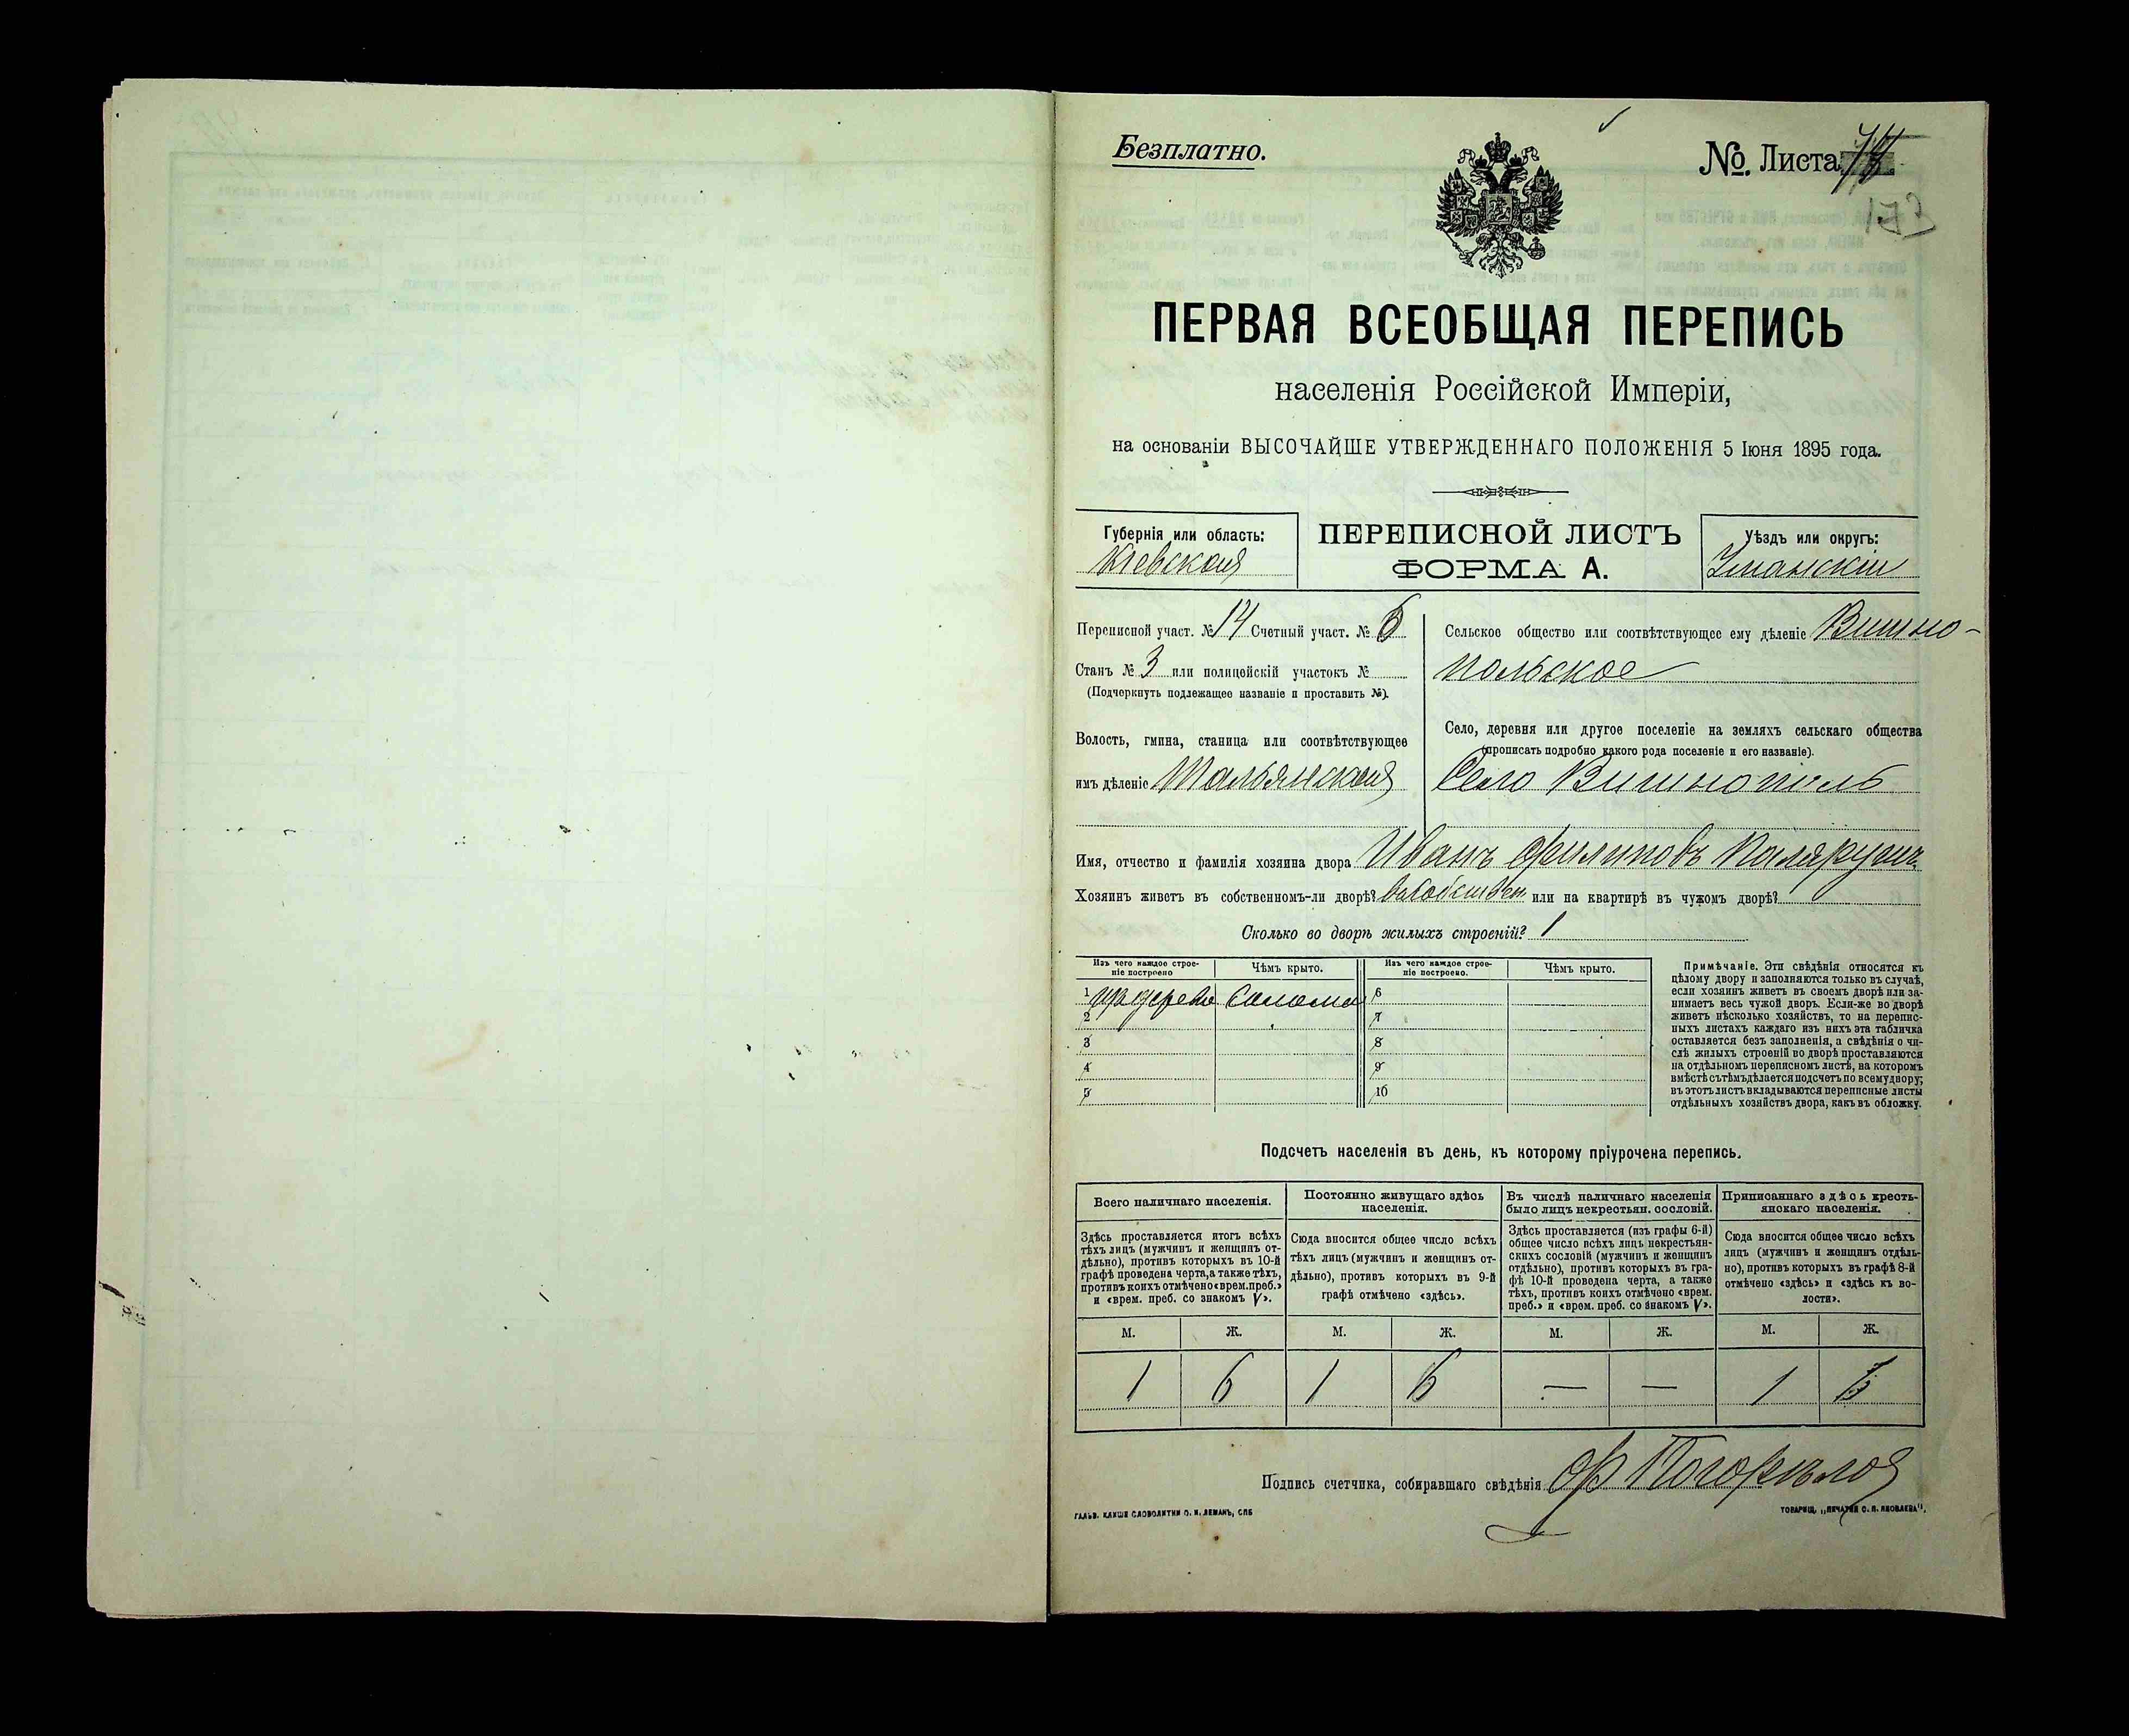 Безплатно.
№ Листа
173
ПЕРВАЯ ВСЕОБЩАЯ ПЕРЕПИСЬ
населенія Россійской Имперіи,
на основаніи ВЫСОЧАЙШЕ УТВЕРЖДЕННАГО ПОЛОЖЕНІЯ 5 Іюня 1895 года.
Губернія или область:
Кіевская
ПЕРЕПИСНОЙ ЛИСТЪ
ФОРМА А.
Уѣздъ или округъ:
Уманскій
Переписной участ. № 14 Счетный участ. № 6
Станъ № 3 или полицейскій участокъ №
(Подчеркнуть подлежащее названіе и проставить №).
Волость, гмина, станица или соотвѣтствующее
имъ дѣленіе Тальянская
Сельское общество или соотвѣтствующее ему дѣленіе Вишно-
польское
Село, деревня или другое поселеніе на земляхъ сельскаго общества
(прописать подробно какого рода поселеніе и его названіе).
Село Вишнополь
Имя, отчество и фамилія хозяина двора Иванъ Филиповъ
Хозяинъ живетъ въ собственномъ-ли дворѣ? въ собствен или на квартирѣ въ чужомъ дворѣ?
Сколько во дворѣ жилыхъ строеній? 1
Изъ чего каждое строе-
ніе построено
Чѣмъ крыто.
Изъ чего каждое строе-
ніе построено.
Чѣмъ крыто.
1 из дерева солома 6
2 7
3 8
4 9
5 10
Примѣчаніе. Эти свѣдѣнія относятся къ
цѣлому двору и заполняются только въ случаѣ,
если хозяинъ живетъ въ своемъ дворѣ или за-
нимаетъ весь чужой дворъ. Если-же во дворѣ
живетъ нѣсколько хозяйствъ, то на перепис-
ныхъ листахъ каждаго изъ нихъ эта табличка
оставляется безъ заполненія, а свѣдѣнія о чи-
слѣ жилыхъ строеній во дворѣ проставляются
на отдѣльномъ переписномъ листѣ, на которомъ
вмѣстѣ съ тѣмъ дѣлается подсчетъ по всему двору;
въ этотъ листъ вкладываются переписные листы
отдѣльныхъ хозяйствъ двора, какъ въ обложку.
Подсчетъ населенія въ день, къ которому пріурочена перепись.
Всего наличнаго населенія.
Здѣсь проставляется итогъ всѣхъ
тѣхъ лицъ (мужчинъ и женщинъ от-
дѣльно), противъ которыхъ въ 10-й
графѣ проведена черта, а также тѣхъ,
противъ коихъ отмѣчено «врем. преб.»
и «врем. преб. со знакомъ V».
Постоянно живущаго здѣсь
населенія.
Сюда вносится общее число всѣхъ
тѣхъ лицъ (мужчинъ и женщинъ от-
дѣльно), противъ которыхъ въ 9-й
графѣ отмѣчено «здѣсь».
Въ числѣ наличнаго населенія
было лицъ некрестьян. сословій.
Здѣсь проставляется (изъ графы 6-й)
общее число всѣхъ лицъ некрестьян-
скихъ сословій (мужчинъ и женщинъ
отдѣльно), противъ которыхъ въ гра-
фѣ 10-й проведена черта, а также
тѣхъ, противъ коихъ отмѣчено «врем.
преб.» и «врем. преб. со знакомъ V».
Приписаннаго здѣсь кресть-
янскаго населенія.
Сюда вносится общее число всѣхъ
лицъ (мужчинъ и женщинъ отдѣль-
но), противъ которыхъ въ графѣ 8-й
отмѣчено «здѣсь» и «здѣсь къ во-
лости».
М. Ж. М. Ж. М. Ж. М. Ж.
1 6 1 6 — — 1 6
Подпись счетчика, собиравшаго свѣдѣнія
ГАЛЬВ. КЛИШЕ СЛОВОЛИТНИ О. И. ЛЕМАНЪ, СПБ
ТОВАРИЩ. „ПЕЧАТНЯ С. П. ЯКОВЛЕВА".